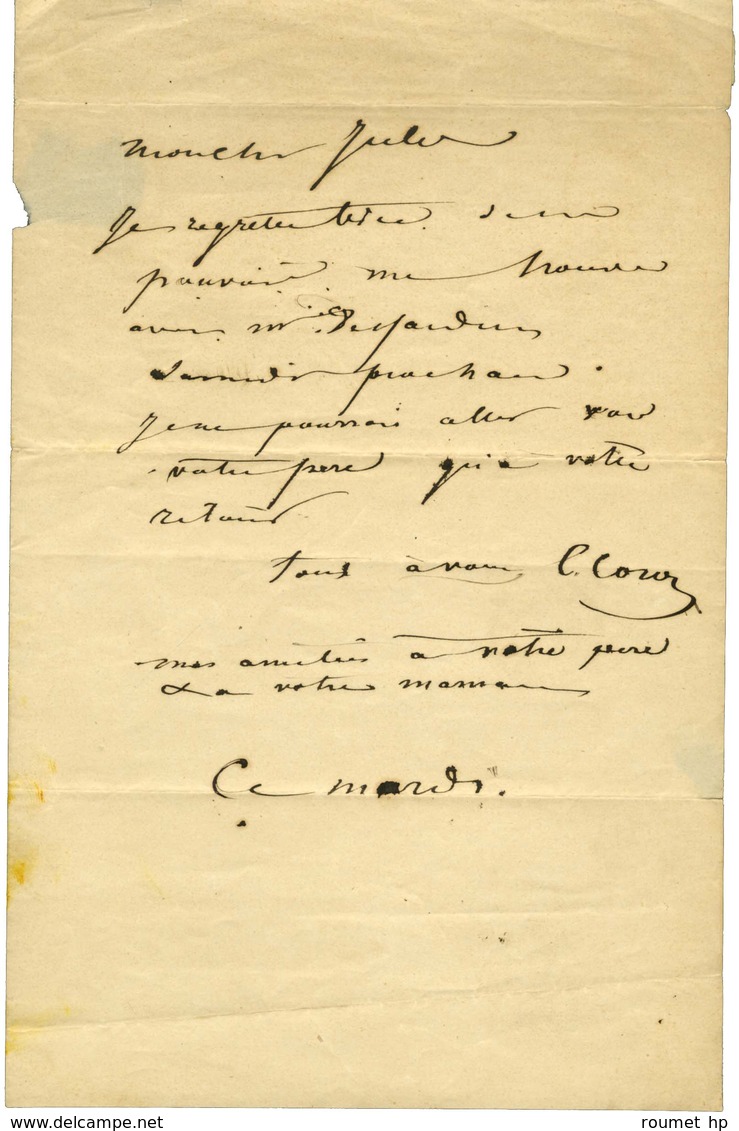 mon cher Jules
Je regrette bien de ne
pouvoir me trouver
avec mr Desjardins
samedi prochain.
Je ne pourrai aller voir
votre pere qu'a votre
retour
tout à vous C. Corot
mes amitiés à votre pere
& a votre maman
Ce mardi.
www.delcampe.net
roumet hp